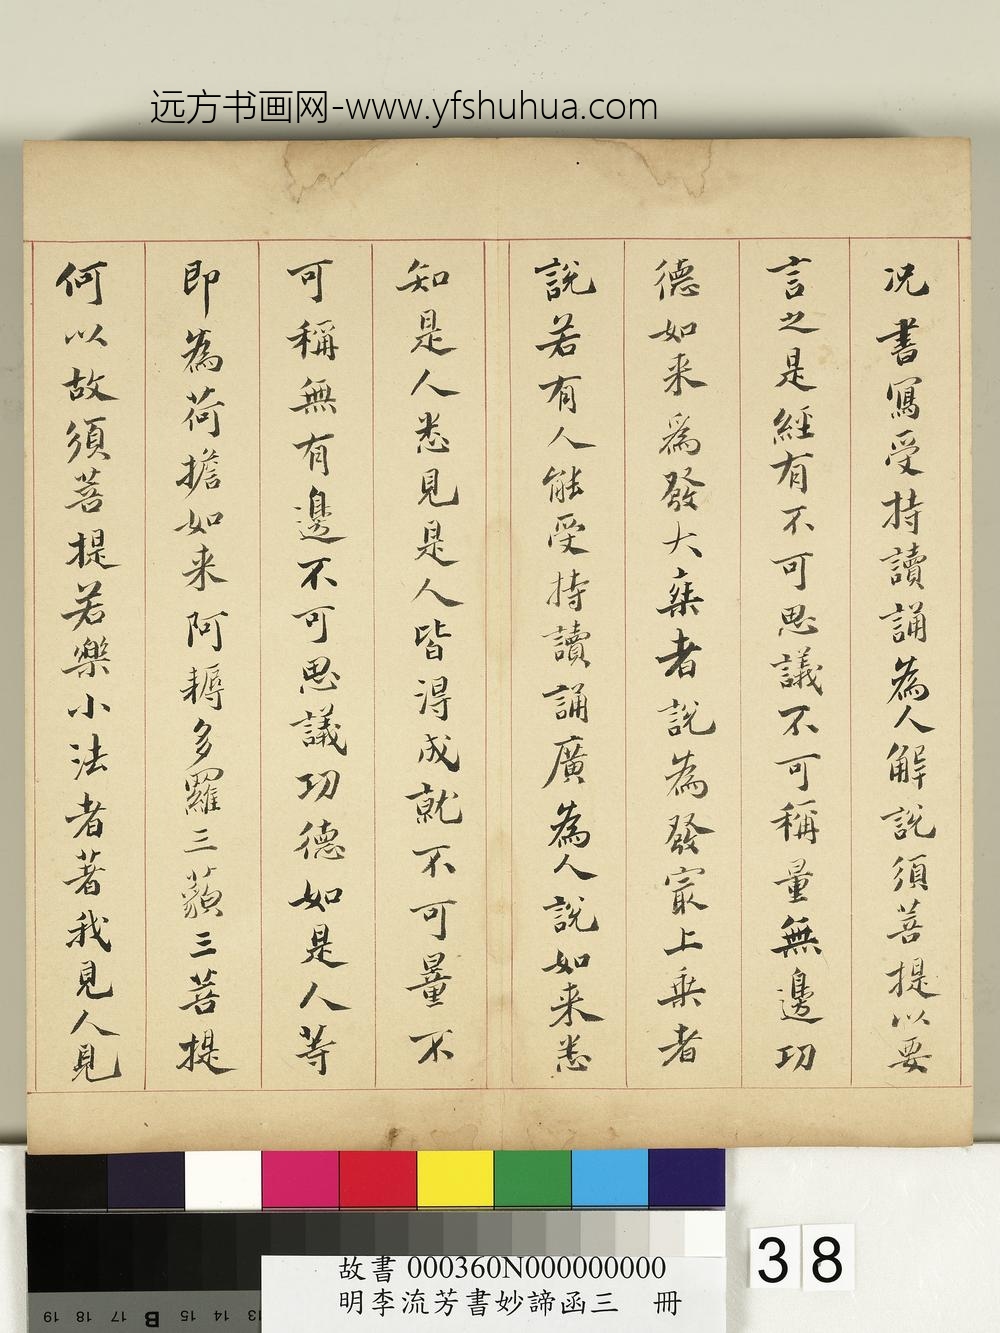 远方书画网-www.yfshuhua.com
况書寫受持讀誦為人解說須菩提以要
言之是經有不可思議不可稱量無邊功
德如来為發大乗者說為發㝡上乗者
說若有人能受持讀誦廣為人說如来悉
知是人悉見是人皆得成就不可量不
可稱無有邊不可思議功德如是人等
即為荷擔如来阿耨多羅三藐三菩提
何以故須菩提若樂小法者著我見人見
38
故書 000360N000000000
明李流芳書妙諦函三 冊
19 18 17 B 15 14 13